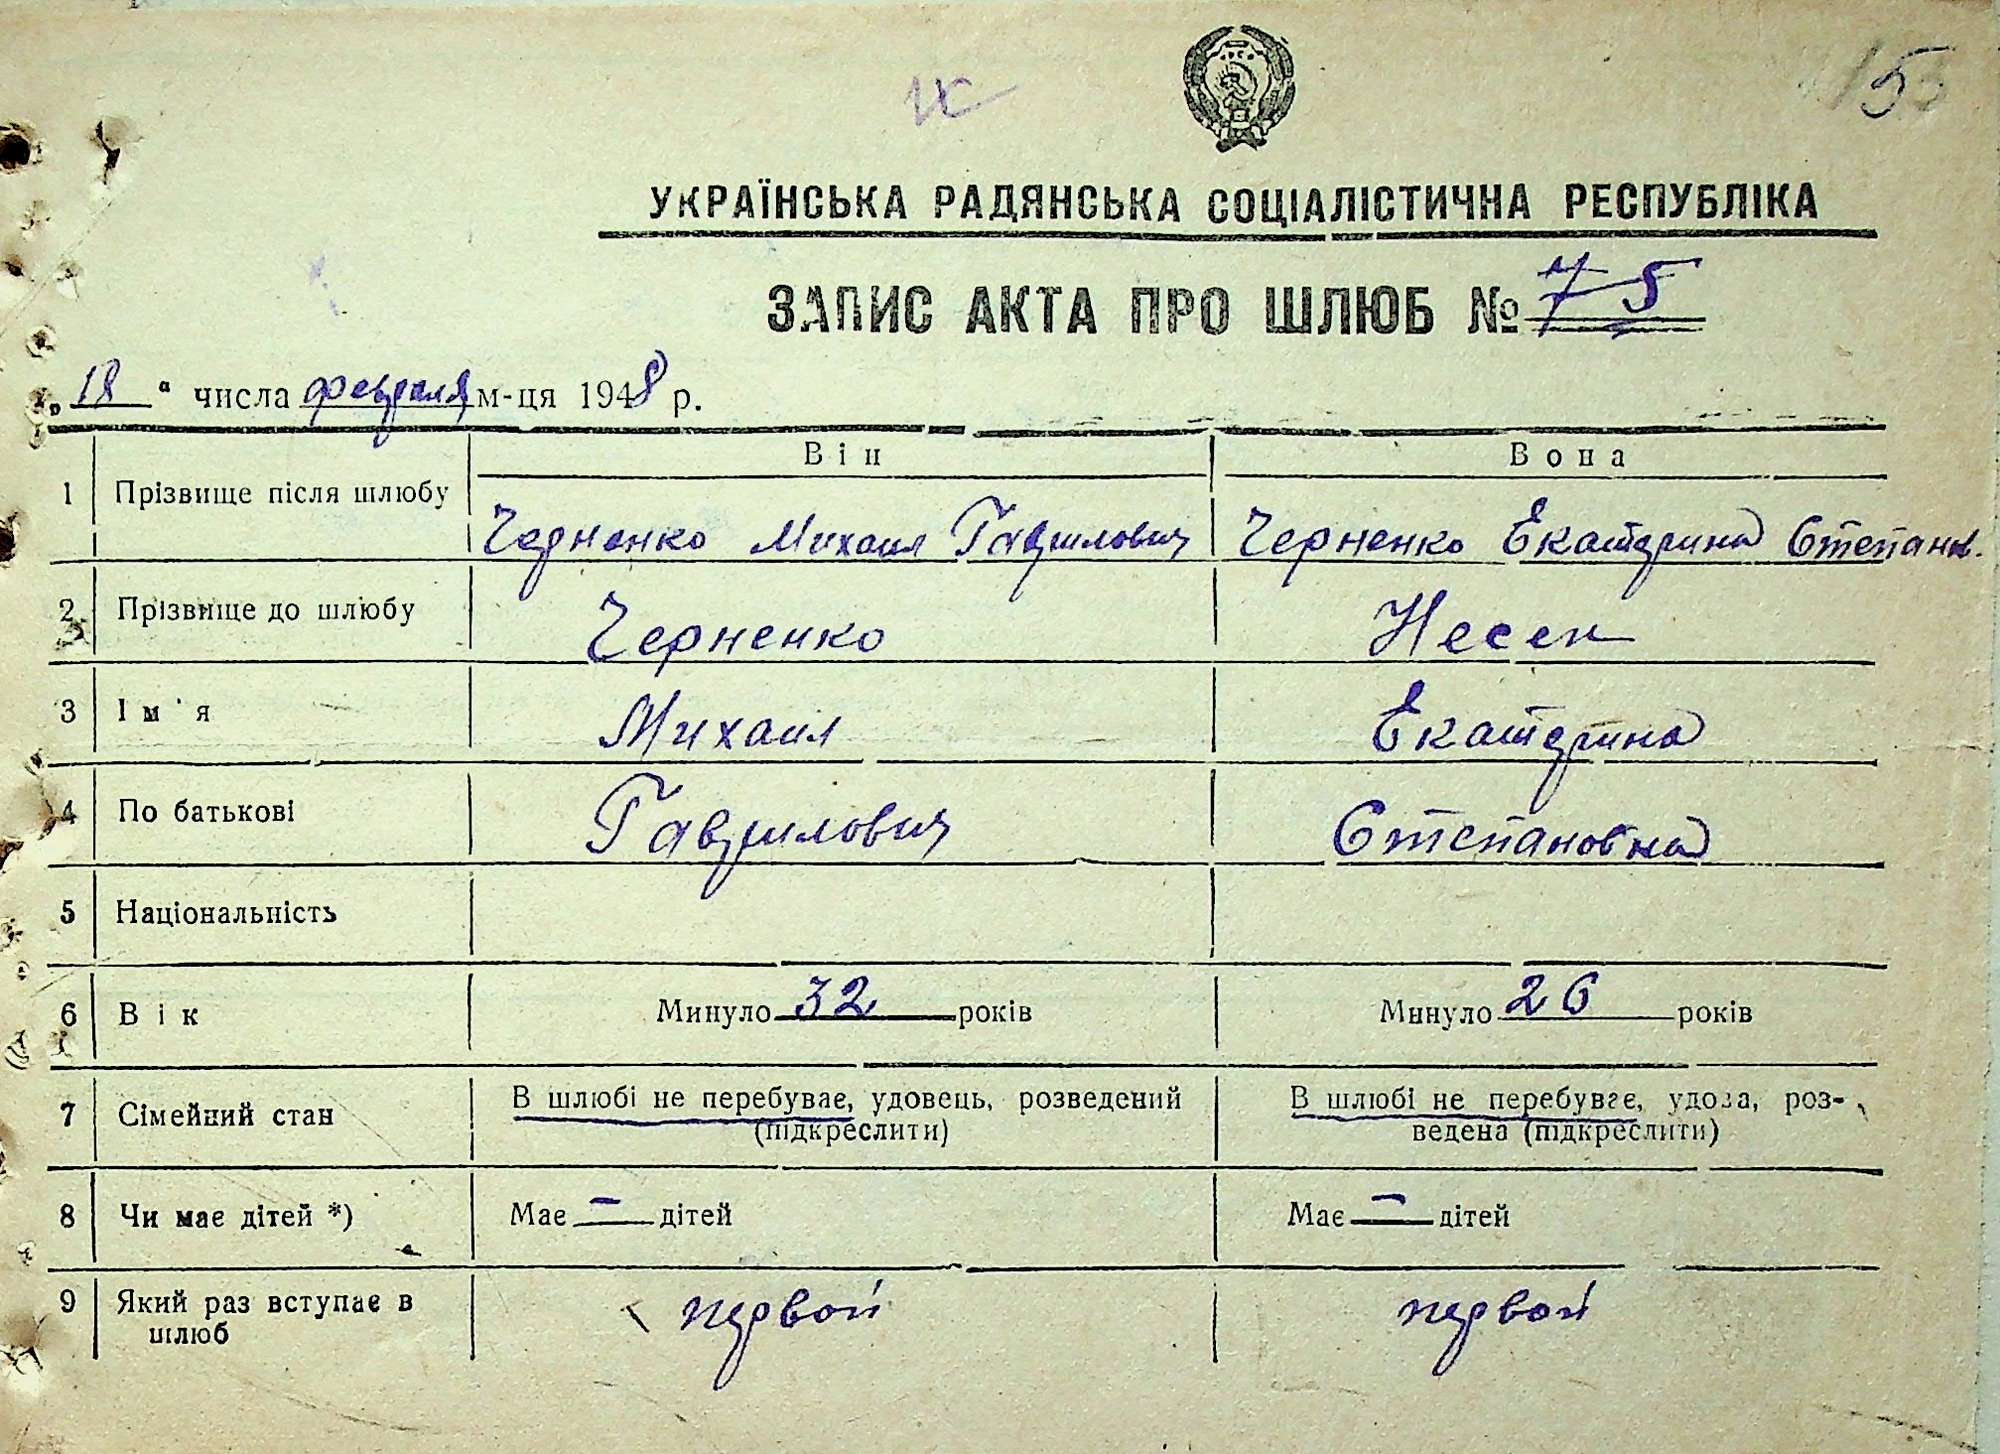 155
УКРАЇНСЬКА РАДЯНСЬКА СОЦІАЛІСТИЧНА РЕСПУБЛІКА
ЗАПИС АКТА ПРО ШЛЮБ № 75
„18" числа февраля м-ця 1948 р.
Він Вона
1 Прізвище після шлюбу Черненко Михаил Гаврилович Черненко Екатерина Степанов.
2 Прізвище до шлюбу Черненко Несен
3 Ім'я Михаил Екатерина
4 По батькові Гаврилович Степановна
5 Національність
6 Вік Минуло 32 років Минуло 26 років
7 Сімейний стан В шлюбі не перебуває, удовець, розведений В шлюбі не перебуває, удова, роз-
(підкреслити) ведена (підкреслити)
8 Чи має дітей *) Має — дітей Має — дітей
9 Який раз вступає в первой первой
шлюб